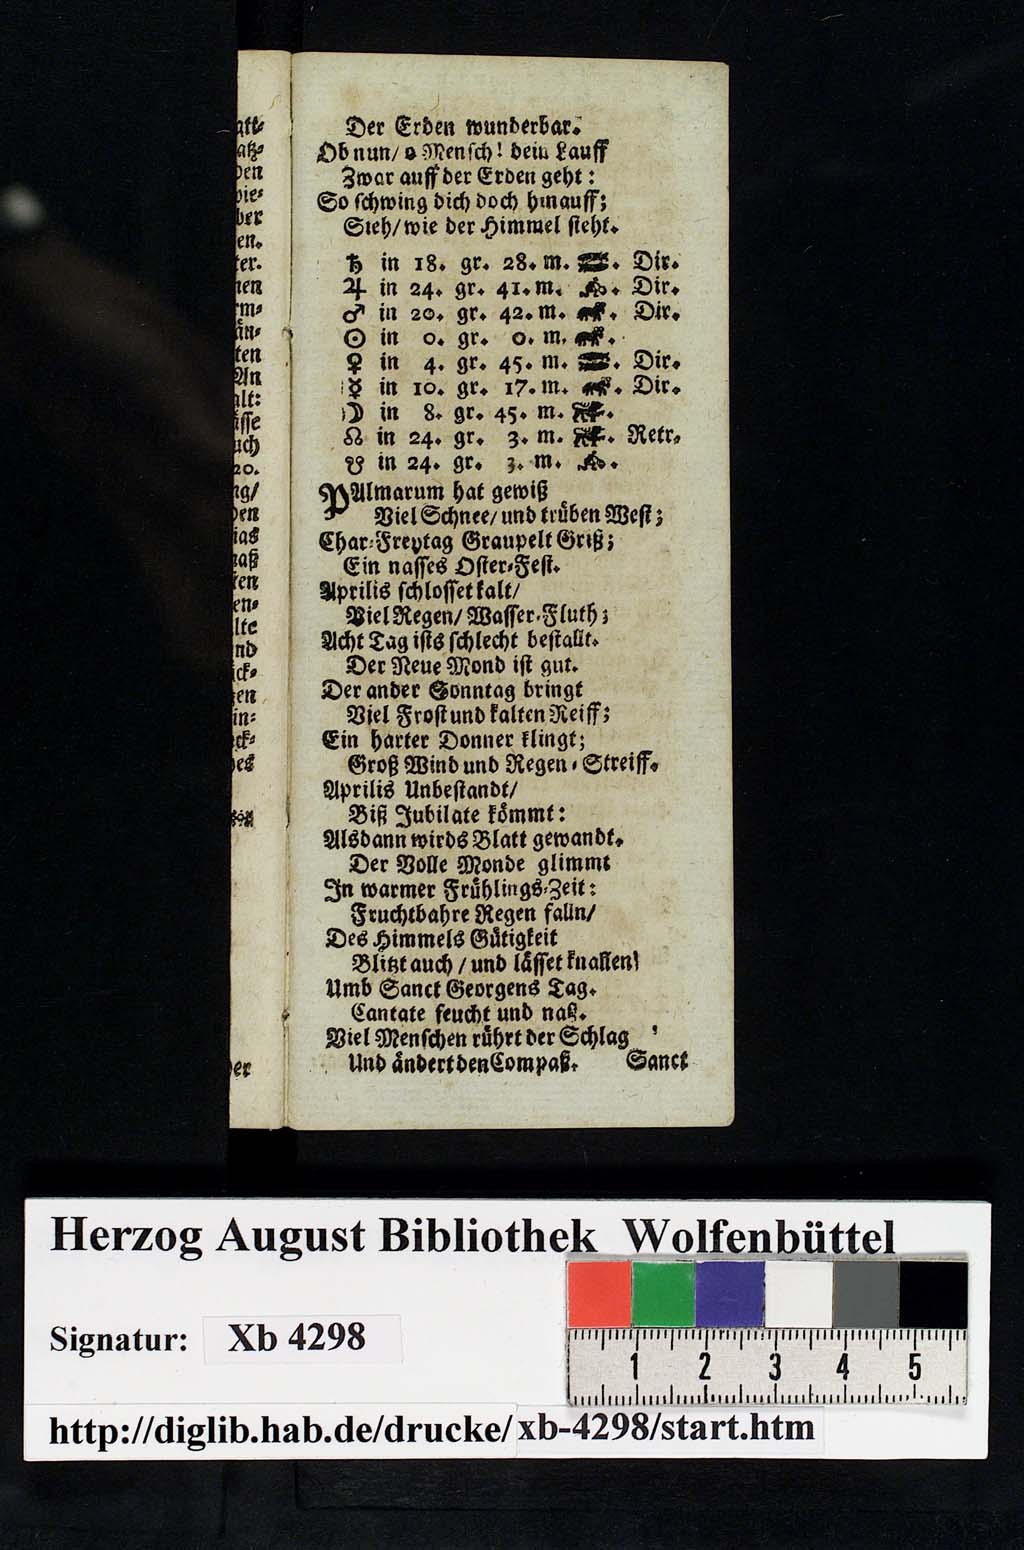 Der Erden wunderbar.
Ob nun/ o Mensch! dein Lauff
Zwar auff der Erden geht:
So schwing dich doch hinauff;
Sieh/ wie der Himmel sieht.
♄ in 18. gr. 28. m. Dir.
♃ in 24. gr. 41. m. Dir.
♂ in 20. gr. 42. m. Dir.
☉ in 0. gr. 0. m.
♀ in 4. gr. 45. m. Dir.
☿ in 10. gr. 17. m. Dir.
☽ in 8. gr. 45. m.
☊ in 24. gr. 3. m. Retr.
☋ in 24. gr. 3. m.
PAlmarum hat gewiß
Viel Schnee/ und trüben West;
Char-Freytag Graupelt Griß;
Ein nasses Oster-Fest.
Aprilis schlosset kalt/
Viel Regen/ Wasser-Fluth;
Acht Tag ists schlecht bestallt.
Der Neue Mond ist gut.
Der ander Sonntag bringt
Viel Frost und kalten Reiff;
Ein harter Donner klingt;
Groß Wind und Regen-Streiff.
Aprilis Unbestandt/
Biß Jubilate kömmt:
Alsdann wirds Blatt gewandt.
Der Volle Monde glimmt
In warmer Frühlings-Zeit:
Fruchtbahre Regen falln/
Des Himmels Gütigkeit
Blitzt auch/ und lässet knallen!
Umb Sanct Georgens Tag.
Cantate feucht und naß.
Viel Menschen rührt der Schlag
Und ändert den Compaß. Sanct
Herzog August Bibliothek Wolfenbüttel
Signatur: Xb 4298
1 2 3 4 5
http://diglib.hab.de/drucke/xb-4298/start.htm